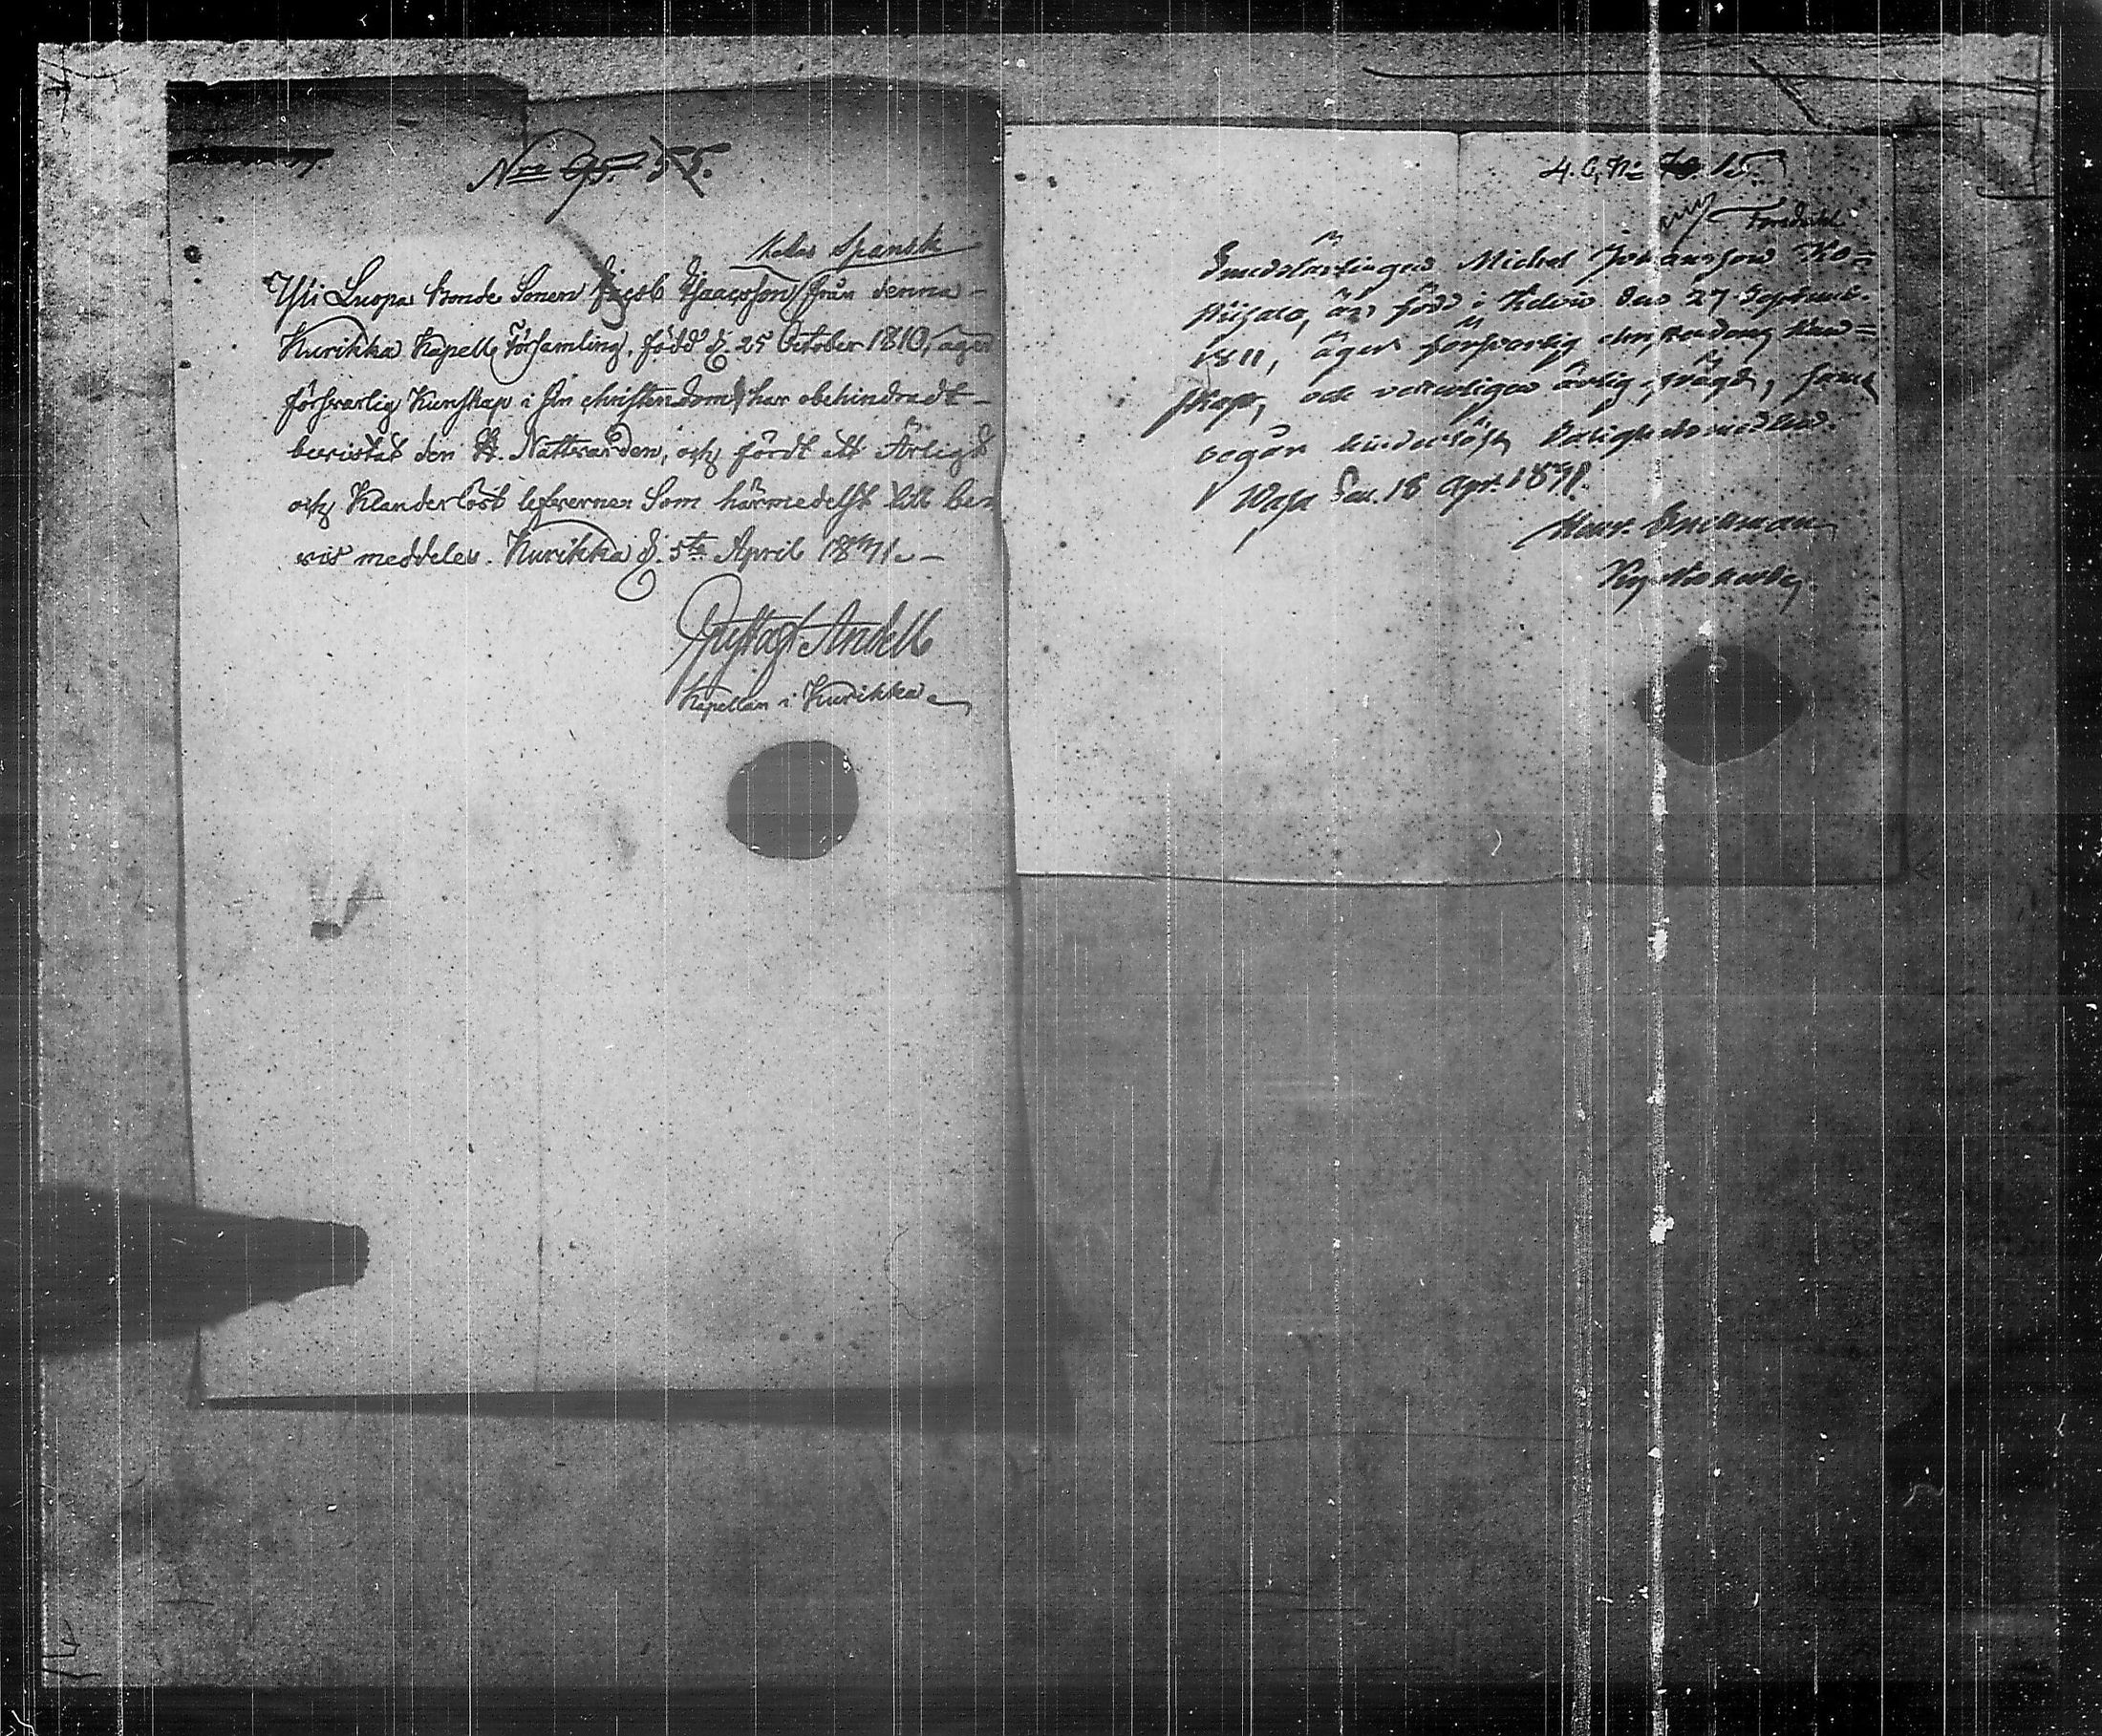 Nro 95. 55.
kallas Spansk
Yli Luopa Bonde Sonen Jacob Isaacsson från denna
Kurikka Kapells Församling, född d. 25 October 1810, äger
försvarlig Kunskap i sin christendom, har obehindradt
bevistat den H. Nattvarden, och fördt ett Ärligt
och Klanderlöst lefverne: Som härmedelst till be-
vis meddeles. Kurikka d. 5te April 1831.
Gustaf Andell
Kapellan i Kurikka
4. C. No 15.
Forsdahl
Smedslärlingen Michel Johansson Ko-
, är född i Kelviå den 27 Septemb.
1811, äger försvarlig christendoms kun-
skap, och veterligen ärlig frägd, samt
begår hinderlöst Salighetsmedlen.
Wasa den 18 Apr. 1831.